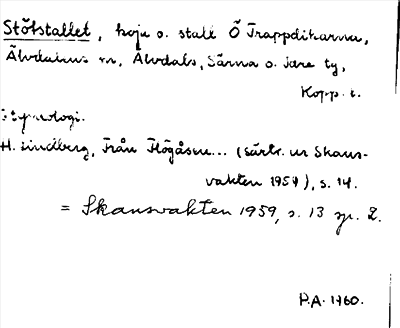 Stötstallet, koja o. stall Ö Trappdikarna,
Älvdalens sn, Älvdals, Särna o. Idre tg,
Kopp. l.
Etymologi.
H. Lindberg, Från Högåsen... (särtr. ur Skans-
vakten 1959), s. 14.
= Skansvakten 1959, s. 13 sp. 2.
P.A. 1960.